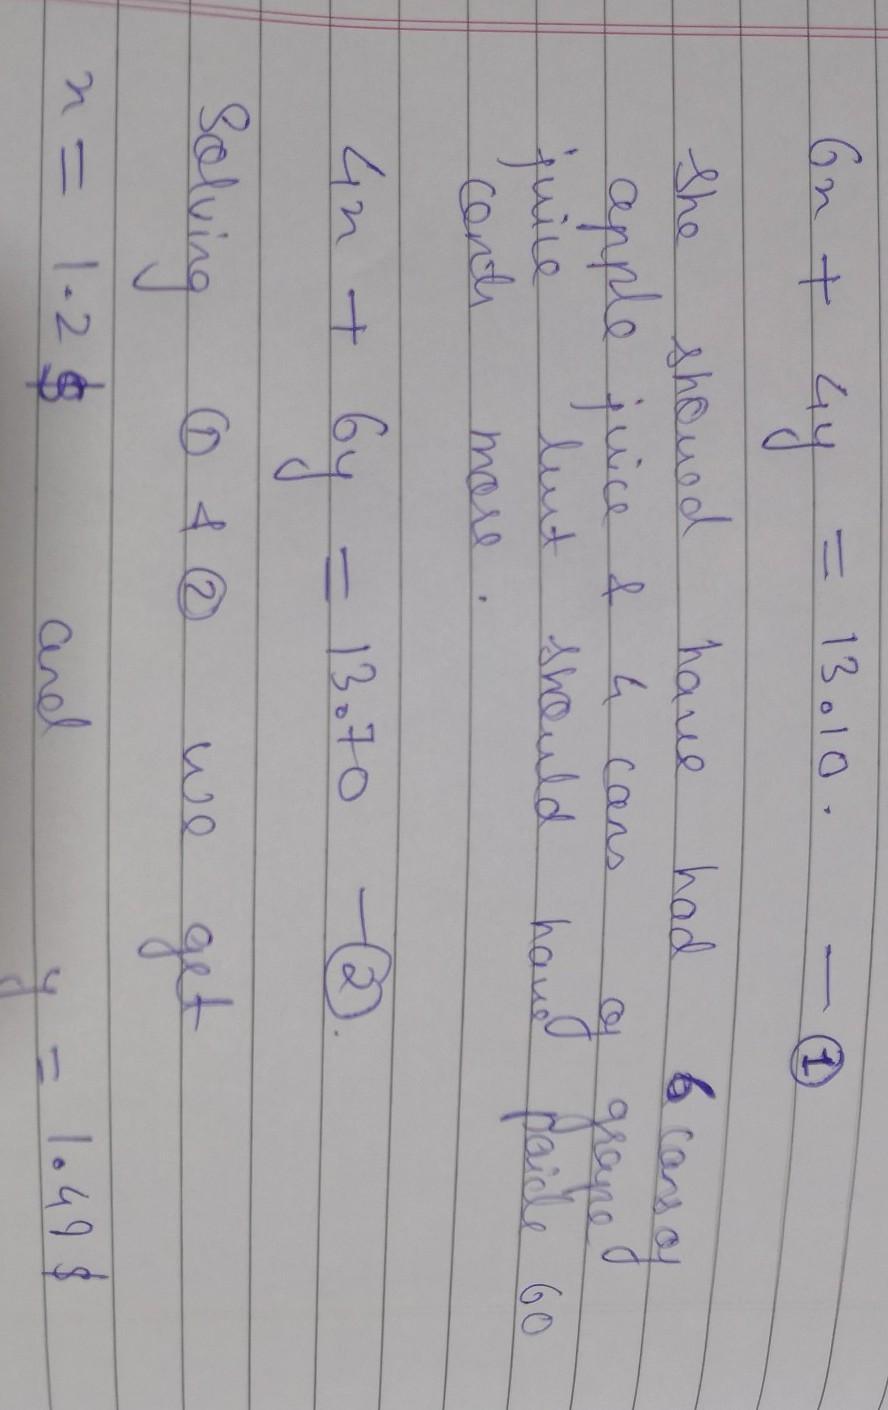 6x + 4y = 13.10. — ①
she shoued have had 6 cans of
apple juice & 4 cans of grape
juice but should have paide 60
cents more.
4x + 6y = 13.70 — ②.
Solving ① & ② we get
x = 1.2 $ and y = 1.49 $